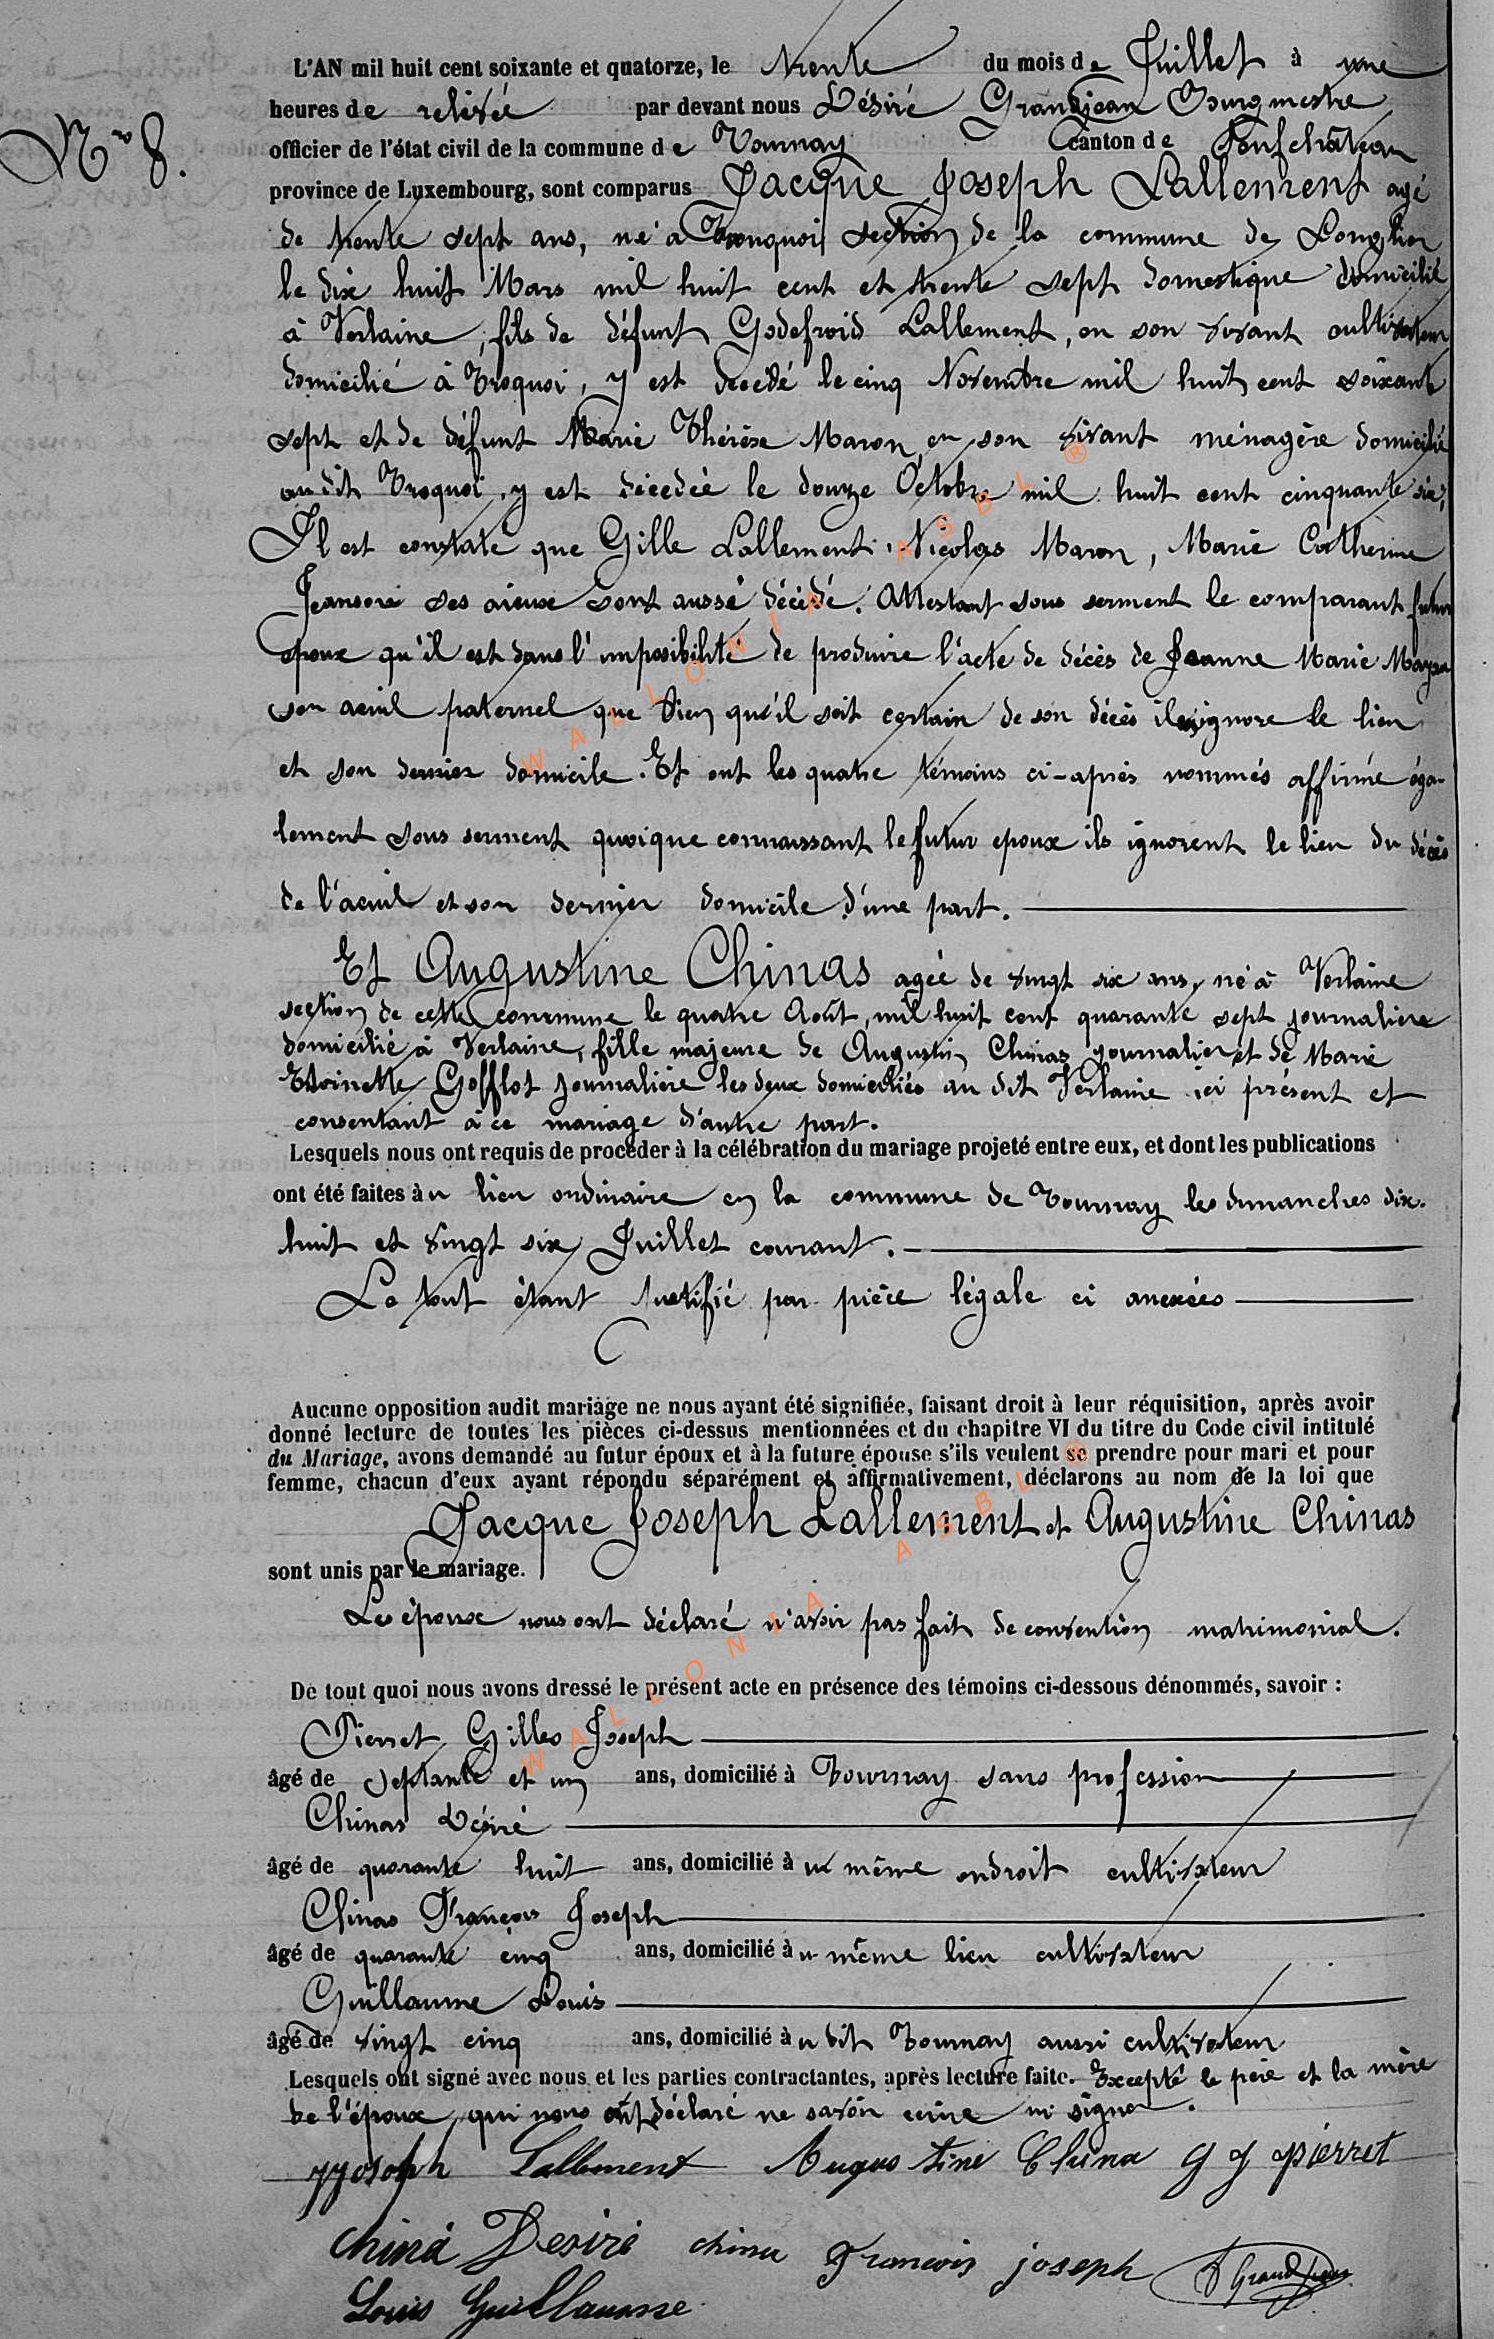 L'AN mil huit cent soixante et quatorze, le trente du mois de Juillet à une
heures de relevée par devant nous Désiré Grandjean Bourgmestre
Nro 8.
officier de l'état civil de la commune de Tournay canton de Neufchâteau
province de Luxembourg, sont comparus Jacque Joseph Lallement agé
de trente sept ans, né à Tronquoi section de la commune de Longlier
le dix huit Mars mil huit cent et trente sept domestique domicilié
à Verlaine, fils de défunt Godefroid Lallement, en son vivant cultivateur
domicilié à Troquoi, y est décédé le cinq Novembre mil huit cent soixante
sept et de défunt Marie Thérèse Maron, en son vivant ménagère domicilié
au dit Troquoi, y est décedée le douze Octobre mil huit cent cinquante six,
Il est constaté que Gille Lallement, Nicolas Maron, Marie Catherine
ses aieux sont aussé décédé. Attestant sous serment le comparant futur
epoux qu'il est dans l'imposibilité de produire l'acte de décès de Jeanne Marie
son aeuil paternel que bien qu'il soit certain de son décès il ignore le lieu
et son dernier domicile. Et ont les quatre témoins ci-après nommés affirmé éga-
lement sous serment quoique connaissant le futur epoux ils ignorent le lieu du décès
de l'aeuil et son dernier domicile d'une part.
Et Augustine Chinas agée de vingt six ans, né à Verlaine
section de cette commune le quatre Août, mil huit cent quarante sept journalière
domicilié à Verlaine, fille majeure de Augustin Chinas journalier et de Marie
Gofflot journalière les deux domiciliés au dit Verlaine ici présent et
consentant à ce mariage d'autre part.
Lesquels nous ont requis de procéder à la célébration du mariage projeté entre eux, et dont les publications
ont été faites au lieu ordinaire en la commune de Tournay les dimanches dix-
huit et vingt six Juillet courant.
Le tout étant justifié par pièce légale ci anexées
Aucune opposition audit mariage ne nous ayant été signifiée, faisant droit à leur réquisition, après avoir
donné lecture de toutes les pièces ci-dessus mentionnées et du chapitre VI du titre du Code civil intitulé
du Mariage, avons demandé au futur époux et à la future épouse s'ils veulent se prendre pour mari et pour
femme, chacun d'eux ayant répondu séparément et affirmativement, déclarons au nom de la loi que
Jacque Joseph Lallement et Augustine Chinas
sont unis par le mariage.
Les époux nous ont déclaré n'avoir pas fait de convention matrimonial.
De tout quoi nous avons dressé le présent acte en présence des témoins ci-dessous dénommés, savoir :
Pierret Gilles Joseph
âgé de septante et un ans, domicilié à Tournay sans profession
Chinas Désiré
âgé de quarante huit ans, domicilié au même endroit cultivateur
Chinas François Joseph
âgé de quarante cinq ans, domicilié au même lieu cultivateur
Guillaume Louis
âgé de vingt cinq ans, domicilié au dit Tournay aussi cultivateur
Lesquels ont signé avec nous et les parties contractantes, après lecture faite. Excepté le père et la mère
de l'époux, qui nous ont déclaré ne savoir ecrire ni signer.
Lallement Augustine China g j pierret
China Desiré china Francois joseph D Grandjean
Louis Guillaume
WALLONIA ASBL ®
WALLONIA ASBL ®